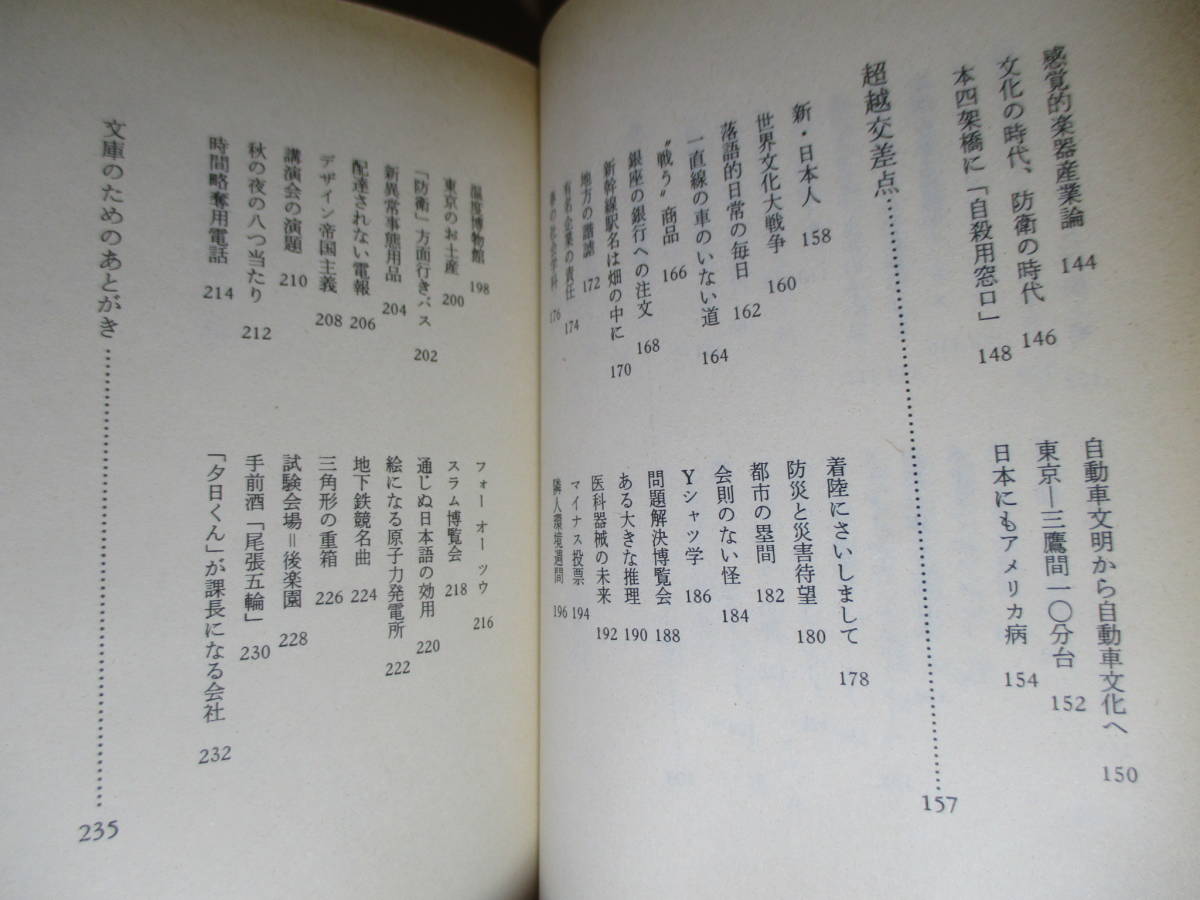 感覚的楽器産業論 144
文化の時代、防衛の時代 146
本四架橋に「自殺用窓口」 148
自動車文明から自動車文化へ 150
東京―三鷹間一〇分台 152
日本にもアメリカ病 154
超越交差点…………………………157
新・日本人 158
世界文化大戦争 160
落語的日常の毎日 162
一直線の車のいない道 164
〝戦う〟商品 166
銀座の銀行への注文 168
新幹線駅名は畑の中に 170
地方の諧謔 172
有名企業の責任 174
の社会学科 176
着陸にさいしまして 178
防災と災害待望 180
都市の塁間 182
会則のない怪 184
Yシャツ学 186
問題解決博覧会 188
ある大きな推理 190
医科器械の未来 192
マイナス投票 194
隣人環境週間 196
温度博物館 198
東京のお土産 200
「防衛」方面行きバス 202
新異常事態用品 204
配達されない電報 206
デザイン帝国主義 208
講演会の演題 210
秋の夜の八つ当たり 212
時間略奪用電話 214
フォー オー ツウ 216
スラム博覧会 218
通じぬ日本語の効用 220
絵になる原子力発電所 222
地下鉄競名曲 224
三角形の重箱 226
試験会場＝後楽園 228
手前酒「尾張五輪」 230
「夕日くん」が課長になる会社 232
文庫のためのあとがき…………………………235